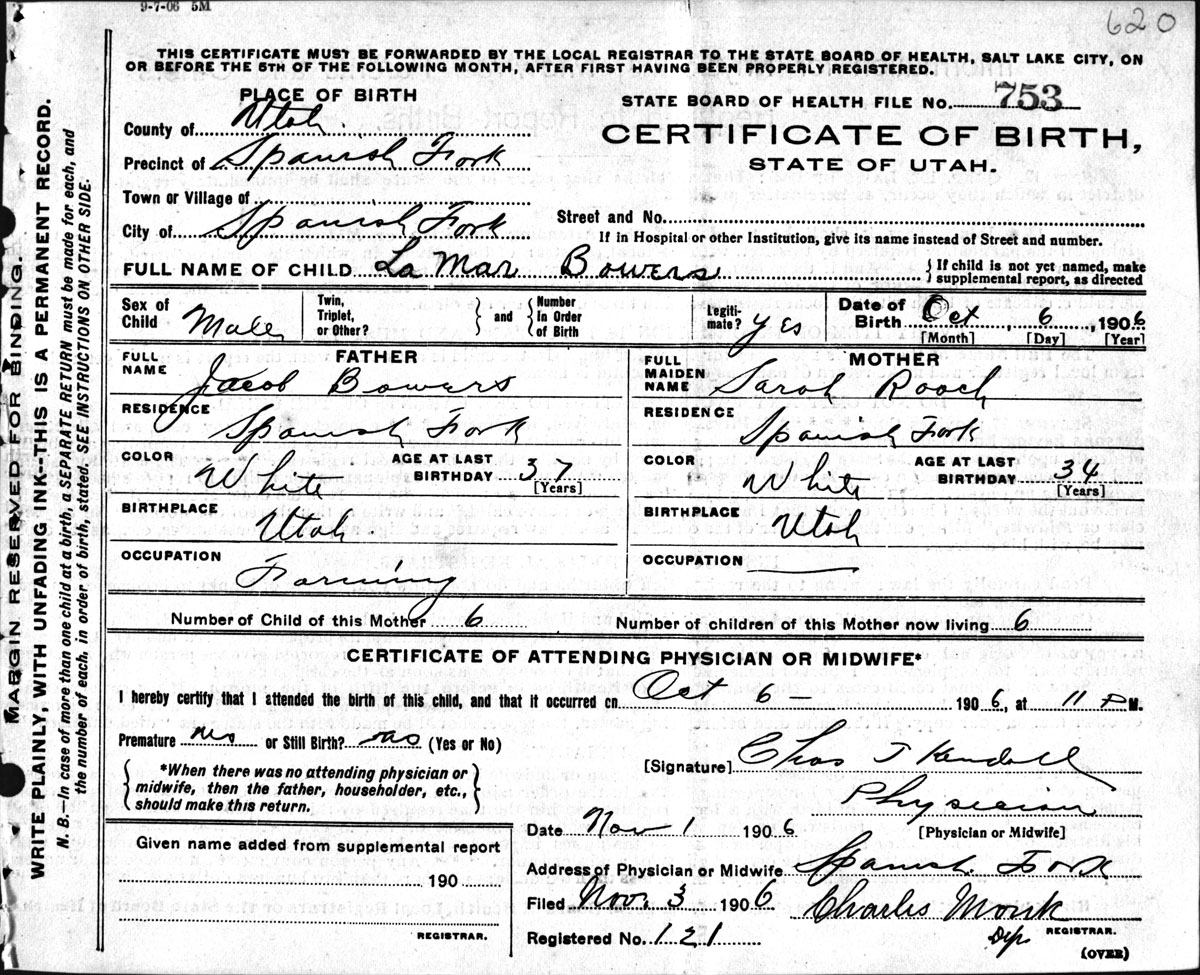 9-7-06 5M
620
THIS CERTIFICATE MUST BE FORWARDED BY THE LOCAL REGISTRAR TO THE STATE BOARD OF HEALTH, SALT LAKE CITY, ON
OR BEFORE THE 5TH OF THE FOLLOWING MONTH, AFTER FIRST HAVING BEEN PROPERLY REGISTERED.
MARGIN RESERVED FOR BINDING.
WRITE PLAINLY, WITH UNFADING INK--THIS IS A PERMANENT RECORD.
N. B.—In case of more than one child at a birth, a SEPARATE RETURN must be made for each, and
the number of each, in order of birth, stated. SEE INSTRUCTIONS ON OTHER SIDE.
PLACE OF BIRTH
STATE BOARD OF HEALTH FILE No. 753
County of Utah.
CERTIFICATE OF BIRTH,
Precinct of Spanish Fork
STATE OF UTAH.
Town or Village of
City of Spanish Fork
Street and No.
If in Hospital or other Institution, give its name instead of Street and number.
FULL NAME OF CHILD La Mar Bowers
{If child is not yet named, make
supplemental report, as directed
Sex of Child Male
Twin, Triplet, or Other? } and { Number In Order of Birth
Legiti-mate? yes
Date of Birth Oct, 6, 1906
[Month] [Day] [Year]
FATHER
FULL NAME Jacob Bowers
RESIDENCE Spanish Fork
COLOR White AGE AT LAST BIRTHDAY 37 [Years]
BIRTHPLACE Utah.
OCCUPATION Farming
MOTHER
FULL MAIDEN NAME Sarah Roach
RESIDENCE Spanish Fork
COLOR White AGE AT LAST BIRTHDAY 34 [Years]
BIRTHPLACE Utah
OCCUPATION
Number of Child of this Mother 6 Number of children of this Mother now living 6
CERTIFICATE OF ATTENDING PHYSICIAN OR MIDWIFE*
I hereby certify that I attended the birth of this child, and that it occurred on Oct 6 1906, at 11 P M.
Premature no or Still Birth? no (Yes or No)
{*When there was no attending physician or
midwife, then the father, householder, etc.,
should make this return.}
[Signature] Chas J Kendall
Physician
Date Nov 1 1906 [Physician or Midwife]
Given name added from supplemental report
190
REGISTRAR.
Address of Physician or Midwife Spanish Fork
Filed Nov. 3 1906 Charles Monk
Dep REGISTRAR.
Registered No. 121
(OVER)